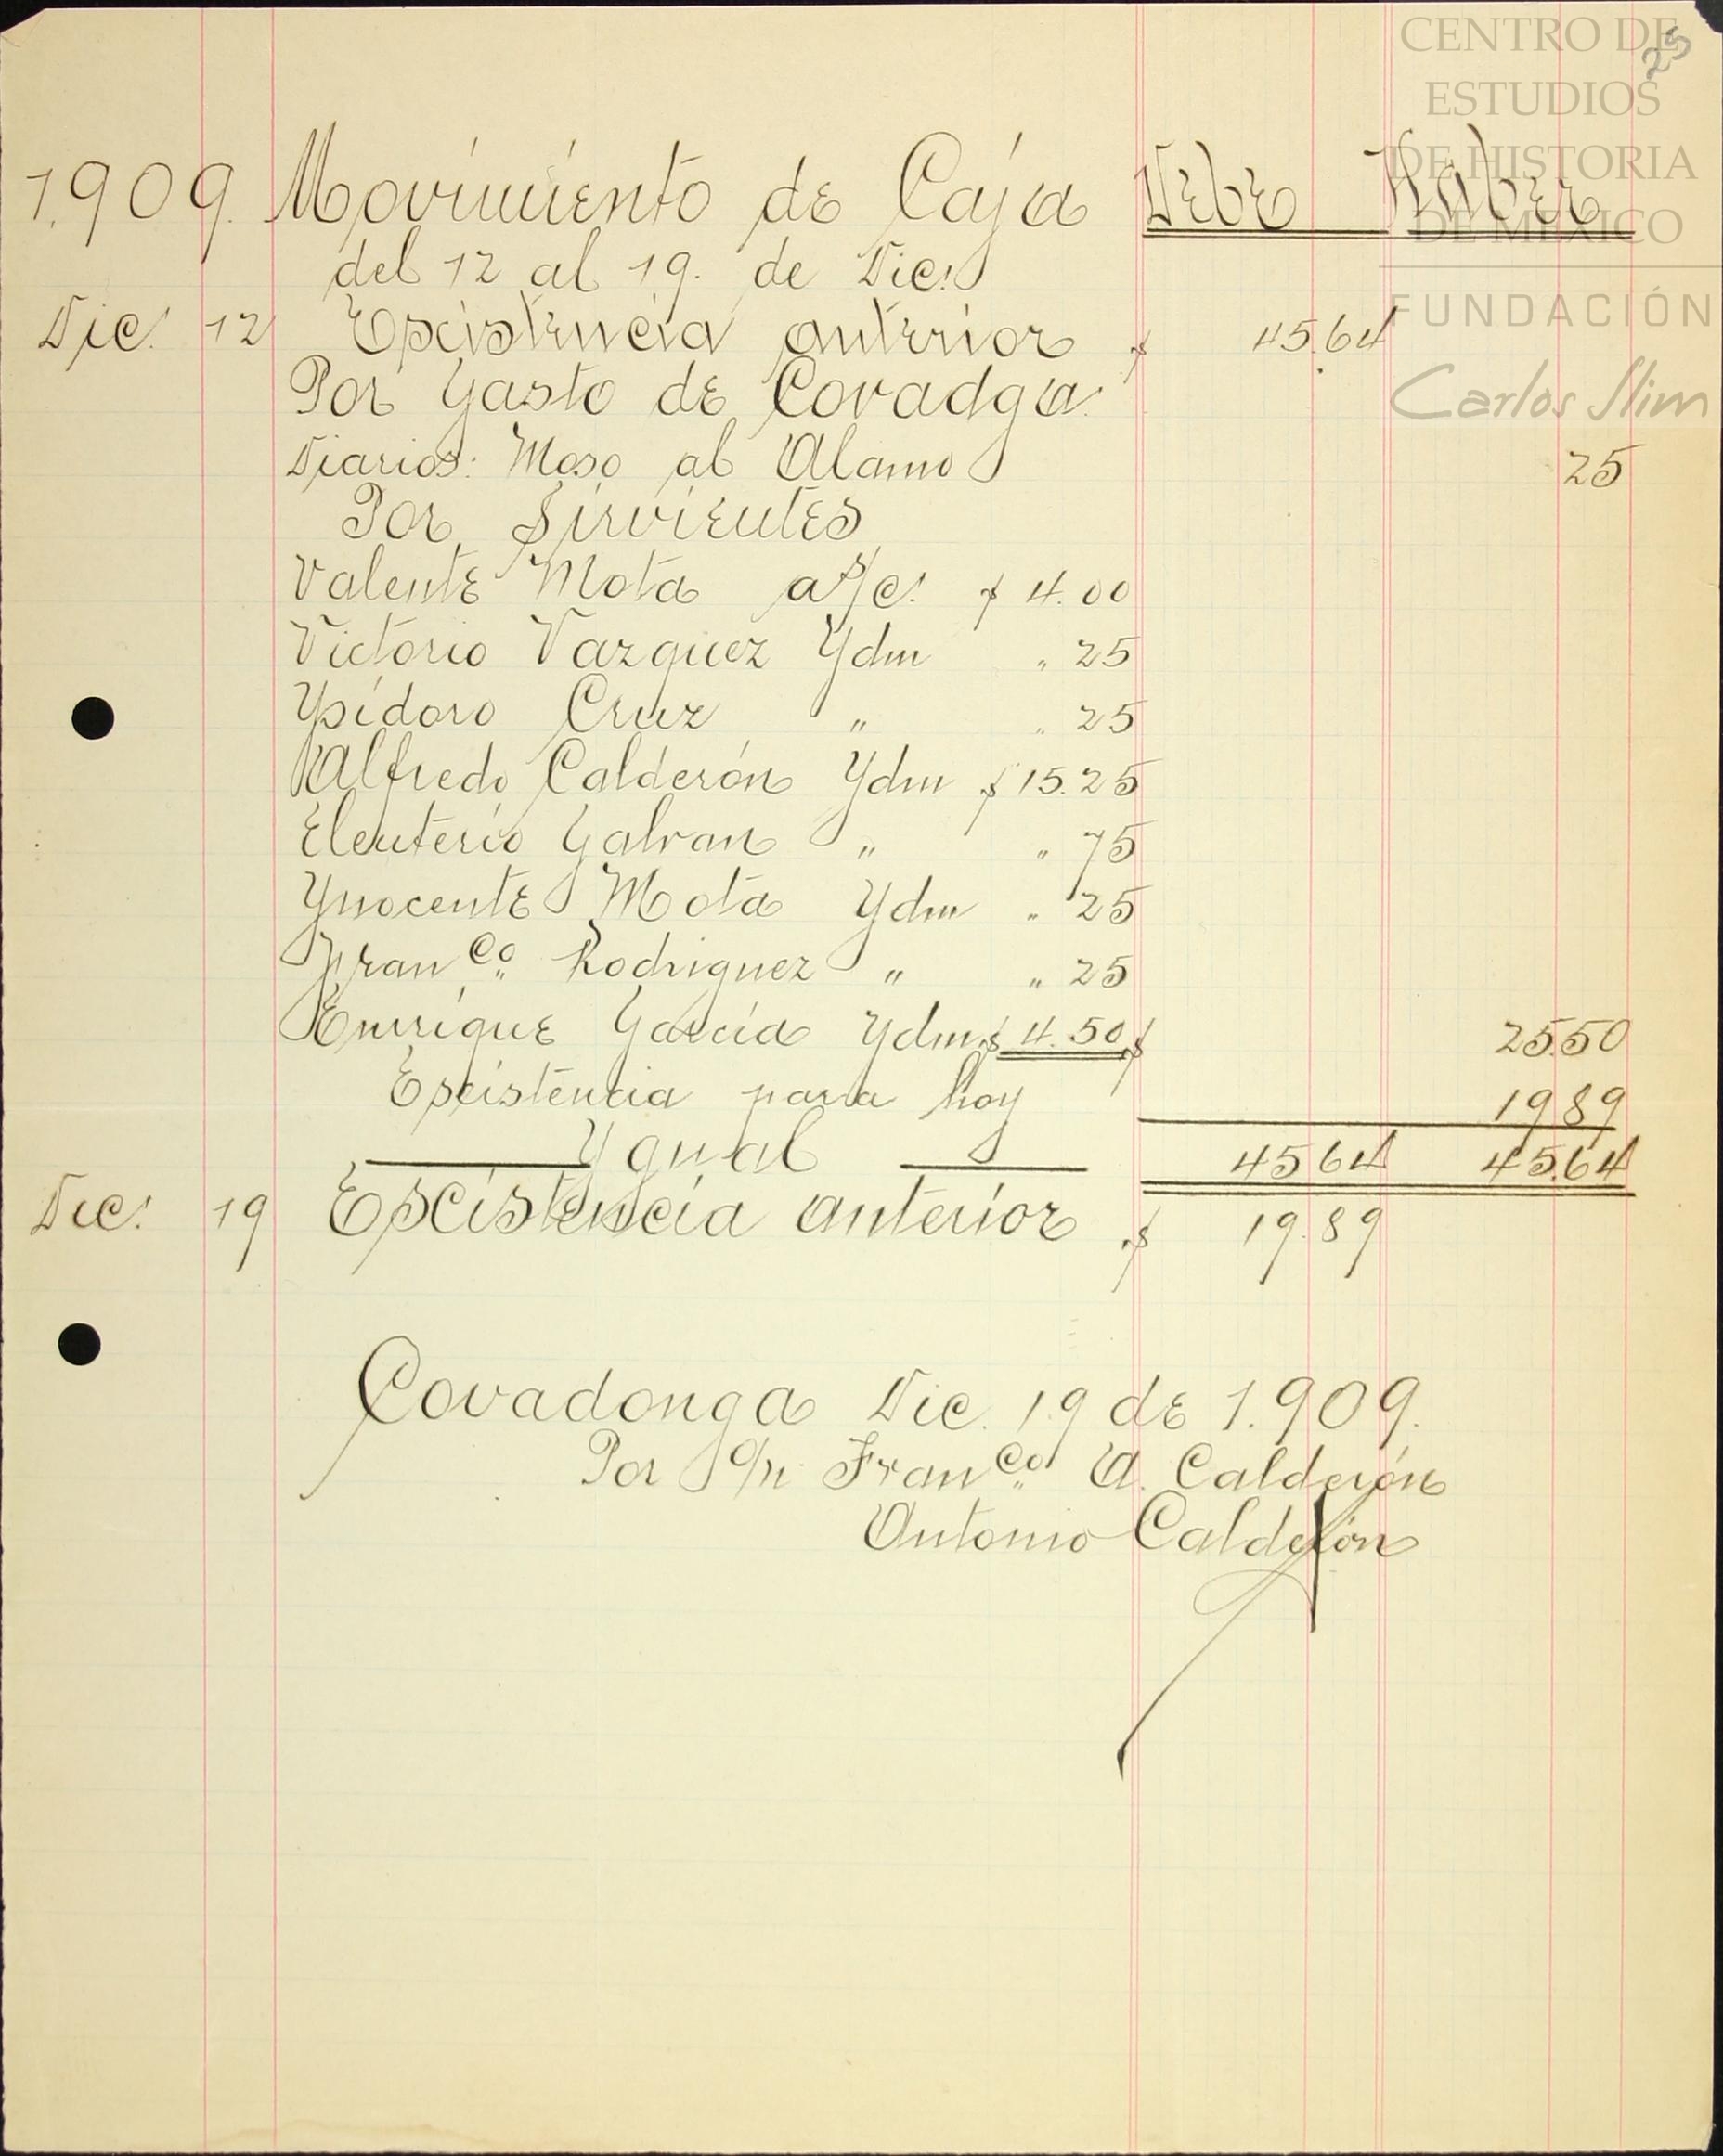 CENTRO DE
ESTUDIOS
DE HISTORIA
DE MÉXICO
FUNDACIÓN
Carlos Slim
25
1,909. Movimiento de Caja Debe Haber
del 12 al 19. de Dic.
Dic. 12 Escistencia anterior $ 45.64
Por Gasto de Covadga.
Diarios: Moso al Alamo 25
Por Sirvientes
Valente Mota a s/c. $ 4.00
Victorio Vazquez Ydm " 25
Ysidoro Cruz " " 25
Alfredo Calderón Ydm $ 15.25
Eleuterio Galvan " " 75
Ynocente Mota Ydm " 25
Franco. Rodriguez " " 25
Enrrique Garcia Ydm $ 4.50 $ 25.50
Escistencia para hoy 19 89
Ygual 45 64 45.64
Dic. 19 Escistencia anterior $ 19.89
Covadonga Dic. 19 de 1.909.
Por O/n Franco. A. Calderón
Antonio Calderón